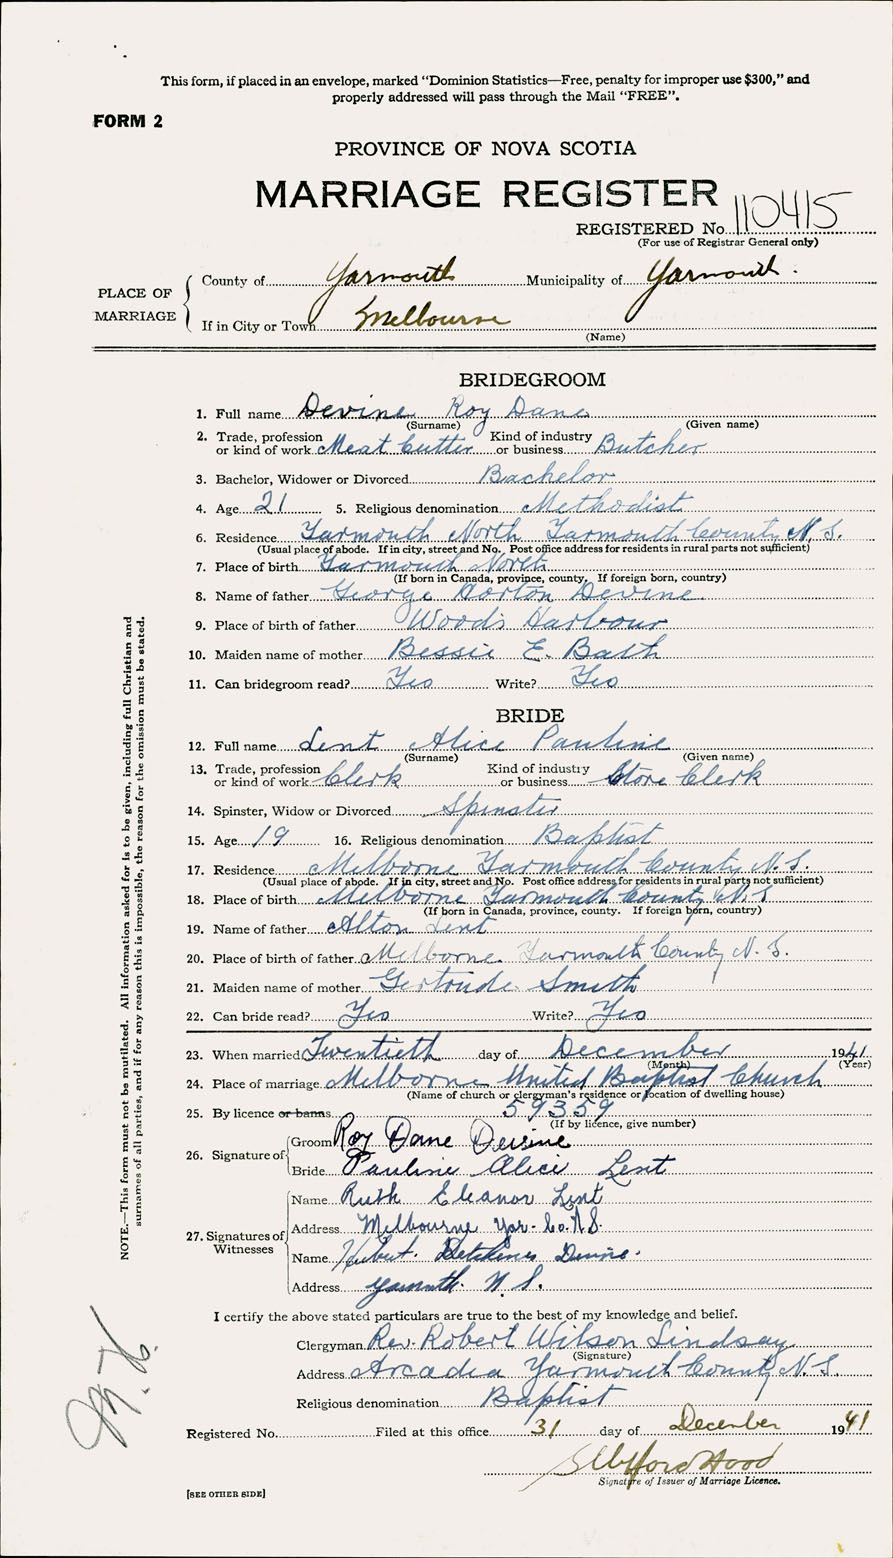 This form, if placed in an envelope, marked “Dominion Statistics—Free, penalty for improper use $300,” and
properly addressed will pass through the Mail “FREE”.
FORM 2
PROVINCE OF NOVA SCOTIA
MARRIAGE REGISTER
REGISTERED No. 110415
(For use of Registrar General only)
PLACE OF MARRIAGE
County of Yarmouth Municipality of Yarmouth
If in City or Town Melbourne
(Name)
BRIDEGROOM
1. Full name Devine Roy Dane
(Surname) (Given name)
2. Trade, profession or kind of work Meat Cutter Kind of industry or business Butcher
3. Bachelor, Widower or Divorced Bachelor
4. Age 21 5. Religious denomination Methodist
6. Residence Yarmouth North Yarmouth County N. S.
(Usual place of abode. If in city, street and No. Post office address for residents in rural parts not sufficient)
7. Place of birth Yarmouth North
(If born in Canada, province, county. If foreign born, country)
8. Name of father George Horton Devine
9. Place of birth of father Woods Harbour
10. Maiden name of mother Bessie E. Bath
11. Can bridegroom read? Yes Write? Yes
BRIDE
12. Full name Lent Alice Pauline
(Surname) (Given name)
13. Trade, profession or kind of work Clerk Kind of industry or business Store Clerk
14. Spinster, Widow or Divorced Spinster
15. Age 19 16. Religious denomination Baptist
17. Residence Melborne Yarmouth County N. S.
(Usual place of abode. If in city, street and No. Post office address for residents in rural parts not sufficient)
18. Place of birth Melborne Yarmouth County N. S
(If born in Canada, province, county. If foreign born, country)
19. Name of father Alton Lent
20. Place of birth of father Melborne Yarmouth County N. S.
21. Maiden name of mother Gertrude Smith
22. Can bride read? Yes Write? Yes
23. When married Twentieth day of December 1941
(Month) (Year)
24. Place of marriage Melborne United Baptist Church
(Name of church or clergyman's residence or location of dwelling house)
25. By licence or banns 59359
(If by licence, give number)
26. Signature of
Groom Roy Dane Devine
Bride Pauline Alice Lent
27. Signatures of Witnesses
Name Ruth Eleanor Lent
Address Melbourne Yar. Co. N.S.
Name Devine.
Address Yarmouth. N. S.
I certify the above stated particulars are true to the best of my knowledge and belief.
Clergyman Rev. Robert Wilson Lindsay
(Signature)
Address Arcadia Yarmouth County N. S.
Religious denomination Baptist
Registered No. Filed at this office 31 day of December 1941
Hood
Signature of Issuer of Marriage Licence.
[SEE OTHER SIDE]
NOTE.—This form must not be mutilated. All information asked for is to be given, including full Christian and
surnames of all parties, and if for any reason this is impossible, the reason for the omission must be stated.